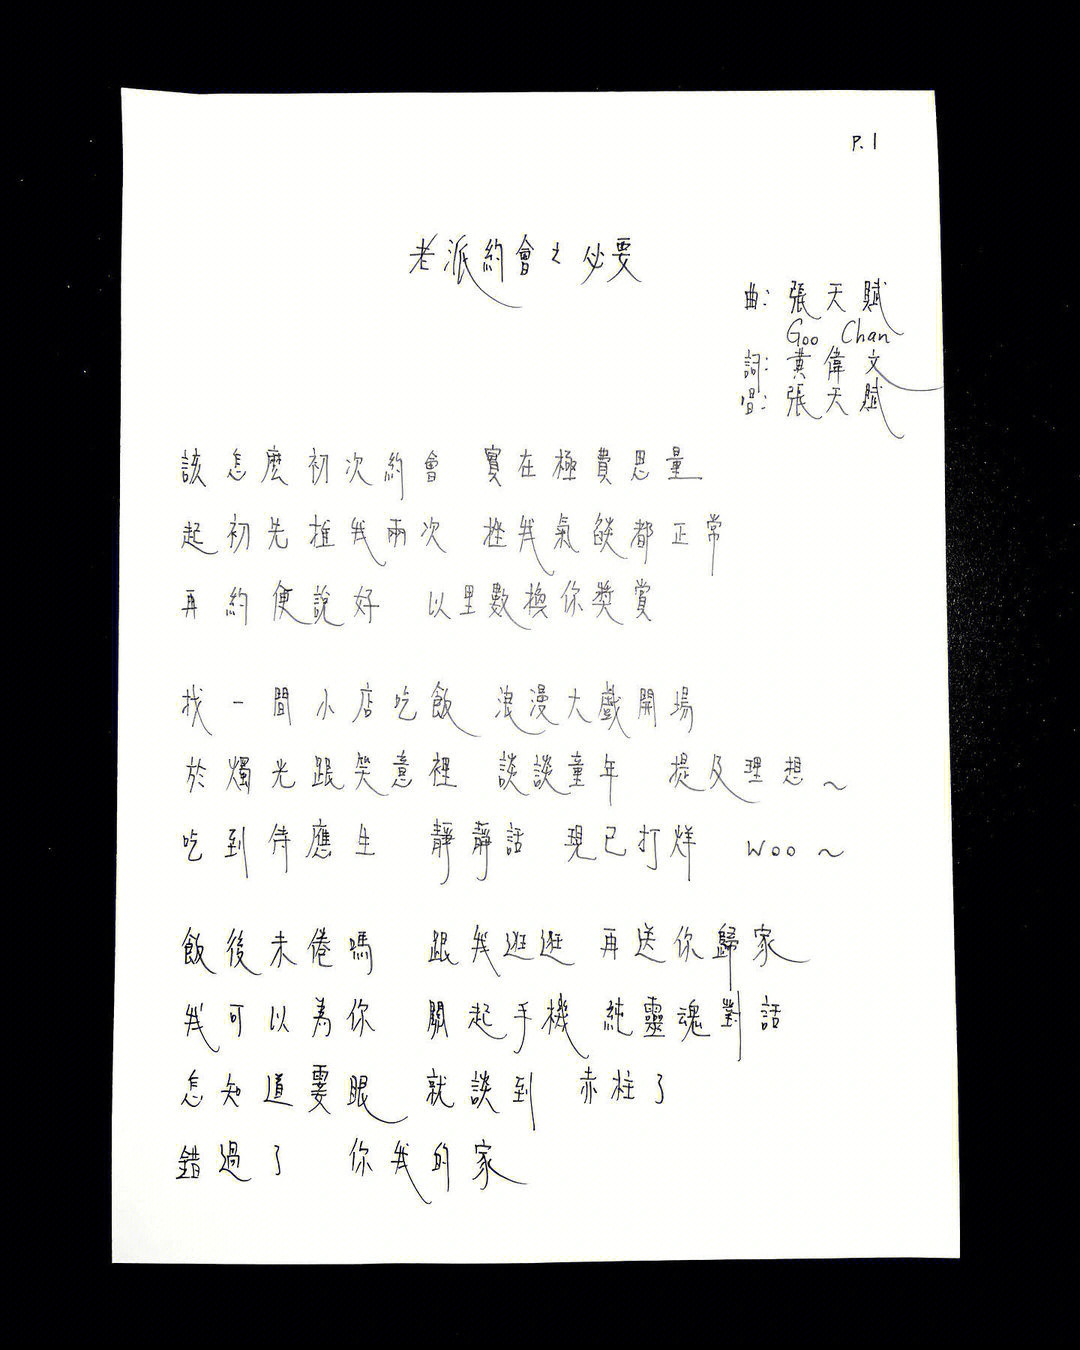 P.1
老派約會之必要
曲: 張天賦
Goo Chan
詞: 黃偉文
唱: 張天賦
該怎麼初次約會 實在極費思量
起初先推我兩次 挫我氣燄都正常
再約便說好 以里數換你獎賞
找一間小店吃飯 浪漫大戲開場
於燭光跟笑意裡 談談童年 提及理想~
吃到侍應生 靜靜話 現已打烊 woo~
飯後未倦嗎 跟我逛逛 再送你歸家
我可以為你 關起手機 純靈魂對話
怎知道霎眼 就談到 赤柱了
錯過了 你我的家